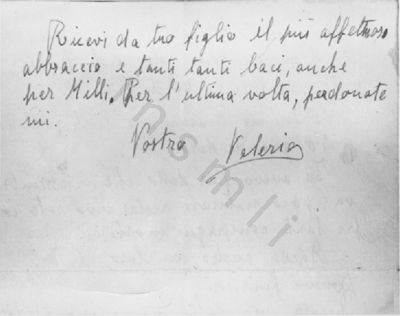 Ricevi da tuo figlio il più affettuoso
abbraccio e tanti tanti baci, anche
per Milli. Per l'ultima volta, perdonate
mi.
Vostro Valerio
insmli